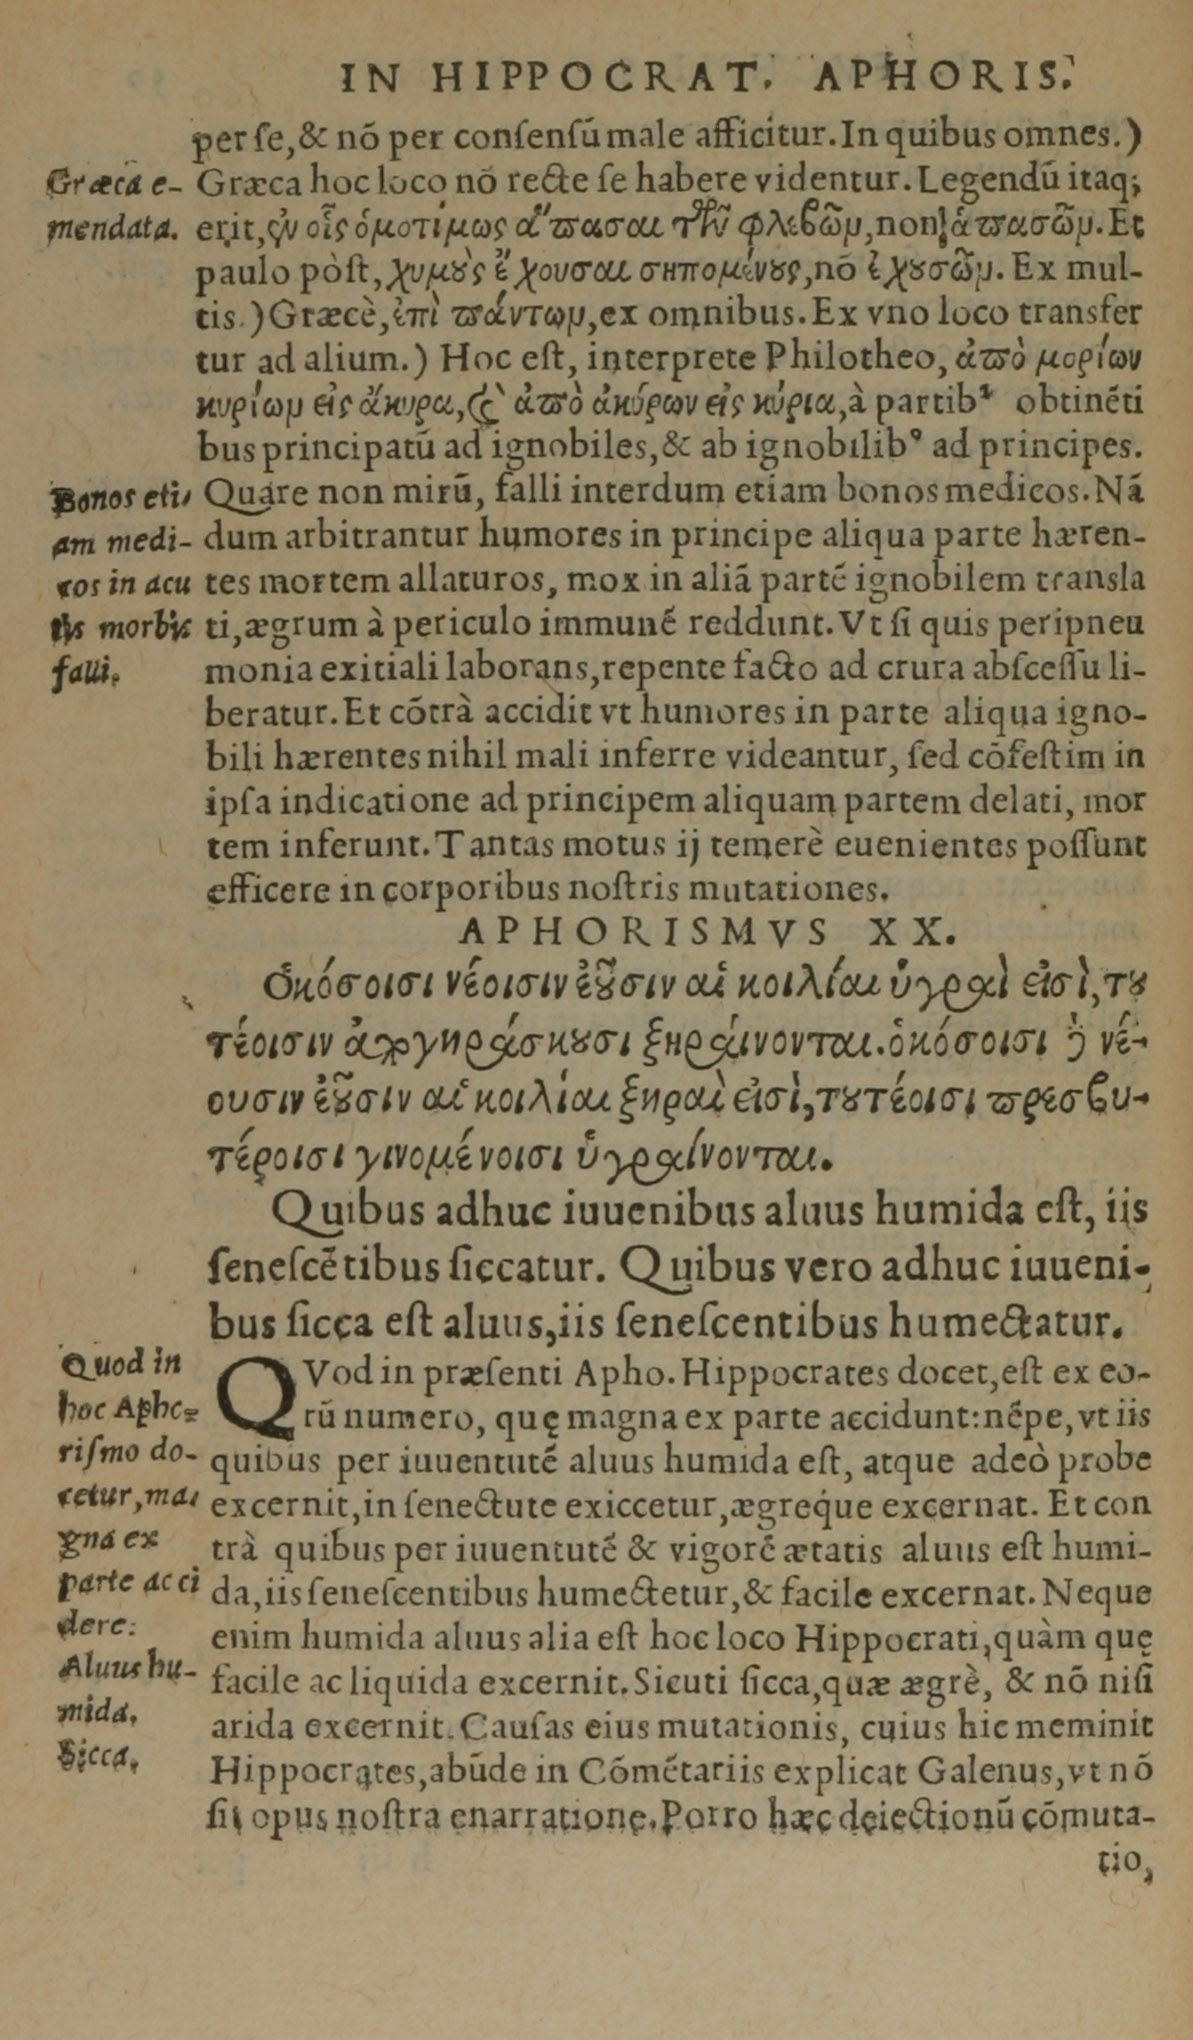 IN HIPPOCRAT. APHORIS.
per ſe, & nō per conſenſū male afficitur. In quibus omnes.)
Græca e-
mendata.
Græca hoc loco nō recte ſe habere videntur. Legendū itaq;
erit, ἐν οἷς ὁμοτίμως ἅπασαι τῶν φλεβῶν, non ἁπασῶν. Et
paulo pòſt, χυμοὺς ἔχουσαι σηπομένους, nō ἐχουσῶν. Ex mul-
tis.) Græcè, ἐπὶ πάντων, ex omnibus. Ex vno loco transfer
tur ad alium.) Hoc eſt, interprete Philotheo, ἀπὸ μορίων
κυρίων εἰς ἄκυρα, καὶ ἀπὸ ἀκύρων εἰς κύρια, à partibꝰ obtinēti
bus principatū ad ignobiles, & ab ignobilibꝰ ad principes.
Bonos eti-
am medi-
cos in acu
tis morbis
falli.
Quare non mirū, falli interdum etiam bonos medicos. Nā
dum arbitrantur humores in principe aliqua parte hæren-
tes mortem allaturos, mox in aliā partē ignobilem transla
ti, ægrum à periculo immunē reddunt. Vt ſi quis peripneu
monia exitiali laborans, repente facto ad crura abſceſſu li-
beratur. Et cōtrà accidit vt humores in parte aliqua igno-
bili hærentes nihil mali inferre videantur, ſed cōfeſtim in
ipſa indicatione ad principem aliquam partem delati, mor
tem inferunt. Tantas motus ij temerè euenientes poſſunt
efficere in corporibus noſtris mutationes.
APHORISMVS XX.
Ὁκόσοισι νέοισιν ἐοῦσιν αἱ κοιλίαι ὑγραὶ εἰσὶ, του
τέοισιν ἀπογηράσκουσι ξηραίνονται. ὁκόσοισι δὲ νέ-
ουσιν ἐοῦσιν αἱ κοιλίαι ξηραὶ εἰσὶ, τουτέοισι πρεσβυ-
τέροισι γινομένοισι ὑγραίνονται.
Quibus adhuc iuuenibus aluus humida eſt, iis
ſeneſcētibus ſiccatur. Quibus vero adhuc iuueni-
bus ſicca eſt aluus, iis ſeneſcentibus humectatur.
Quod in
hoc Apho-
riſmo do-
cetur, ma-
gna ex
parte acci
dere.
Aluus hu-
mida.
Sicca.
QVod in præſenti Apho. Hippocrates docet, eſt ex eo-
rū numero, quę magna ex parte accidunt: nēpe, vt iis
quibus per iuuentutē aluus humida eſt, atque adeò probe
excernit, in ſenectute exiccetur, ægreq́ue excernat. Et con
trà quibus per iuuentutē & vigorē ætatis aluus eſt humi-
da, iis ſeneſcentibus humectetur, & facile excernat. Neque
enim humida aluus alia eſt hoc loco Hippocrati, quàm quę
facile ac liquida excernit. Sicuti ſicca, quæ ægrè, & nō niſi
arida excernit. Cauſas eius mutationis, cuius hic meminit
Hippocrates, abūde in Cōmētariis explicat Galenus, vt nō
ſit opus noſtra enarratione. Porro hæc deiectionū cōmuta-
tio,